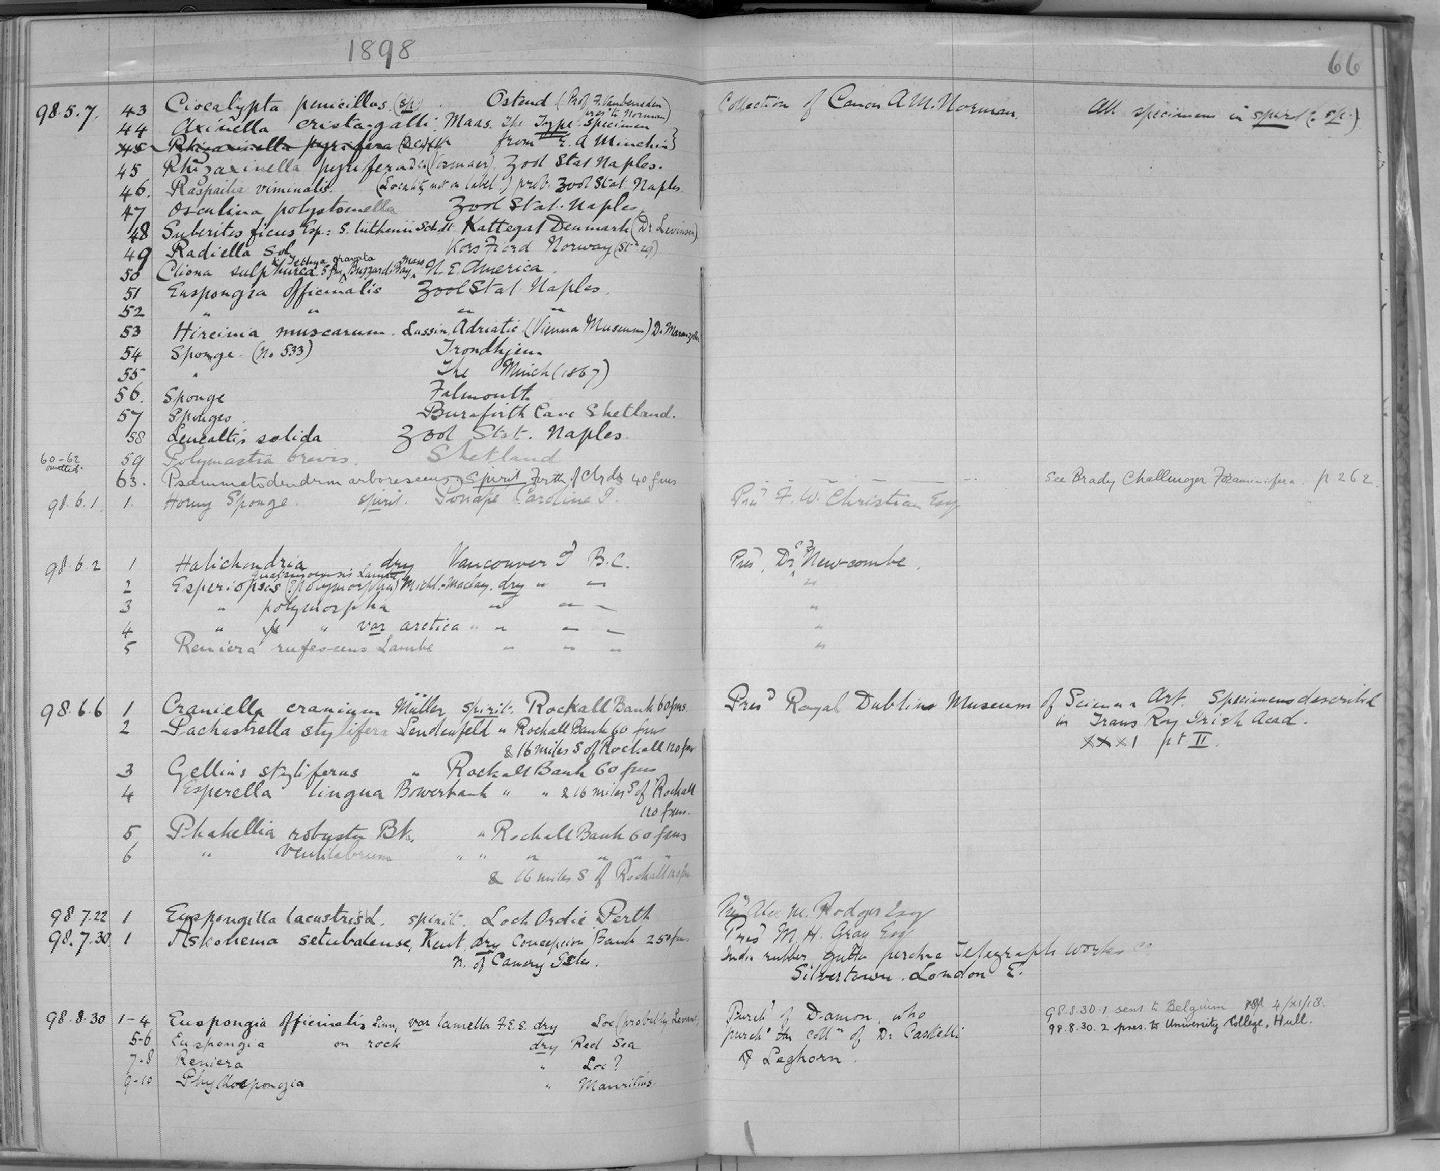 1898
66
98.5.7. 43 Ciocalypta penicillus (sp) Ostend (Prof. F. Vanbeneden Collection of Canon A.M. Norman. All specimens in spirit (sp.)
pres. to Norman)
44 Axinella crista-galli. Maas. The Type specimen
45 Rhizaxinella pyrifera from E. A Minchin}
45 Rhizaxinella pyrifera Zool Stat Naples.
46. Raspailia viminalis. (Locality not on label.) prob. Zool Stat. Naples
47 Osculina polystomella Zool Stat. Naples
48 Suberites ficus Esp: S. lütkenii Schdt. Kattegat Denmark (Dr Levinsen)
49 Radiella sol Kors Fiord Norway
50 Cliona sulphurea Buzzards Bay, Mass N. E. America.
51 Euspongia officinalis Zool Stat. Naples.
52 " " " "
53 Hircinia muscarum. Lussin, Adriatic (Vienna Museum)
54 Sponge. (No 533) Trondhjem
55 " The Minch (1867)
56. Sponge Falmouth
57 Sponges. Burrafirth Cave Shetland.
58 Leucaltis solida Zool Stat. Naples
60-62 omitted. 59 Polymastia brevis. Shetland
63. Psammatodendron arborescens spirit Forth of Clyde 40 fms See Brady Challenger Foraminifera. p 262.
98.6.1. 1. Horny Sponge. spirit. Ponape Caroline I. Pres^d F. W. Christian Esq
98.6.2 1 Halichondria dry Vancouver I B.C. Pres^d Dr Newcombe.
2 Esperiopsis (? polymorpha) Michl.-Maclay. dry " " "
3 " polymorpha " " " "
4 " " var arctica " " " " "
5 Reniera rufescens Lambe " " " "
98.6.6 1 Craniella cranium Müller spirit. Rockall Bank 60 fms. Pres^d Royal Dublin Museum of Science & Art. Specimens described
2 Pachastrella stylifera Lendenfeld " Rockall Bank 60 fms in Trans Roy Irish Acad.
& 16 miles S of Rockall 120 fms XXXI pt II.
3 Gellius styliferus " Rockall Bank 60 fms
4 Esperella lingua Bowerbank " " & 16 miles S of Rockall
120 fms.
5 Phakellia robusta Bk. " Rockall Bank 60 fms
6 " ventilabrum " " " " " "
& 16 miles S of Rockall
98.7.22 1 Euspongilla lacustris L. spirit. Loch Ordie Perth Pres^d Alex M. Rodger Esq
98.7.30 1 Askonema setubalense, Kent, dry Concepcion Bank 250 fms Pres^d M. H. Gray Esq
n. of Canary Isles. India rubber, gutta percha Telegraph works Co
Silvertown. London E.
98.8.30 1-4 Euspongia officinalis Linn, var lamella F.E.S. dry Loc (probably Levant) Purch^d of Damon, who 98.8.30.1 sent to Belgium 4/XI/18.
5-6 Euspongia on rock dry Red Sea purch^d the coll^n of Dr Castelli 98.8.30.2 pres. to University College, Hull.
7-8 Reniera " Loc? of Leghorn.
9-10 Phyllospongia " Mauritius.